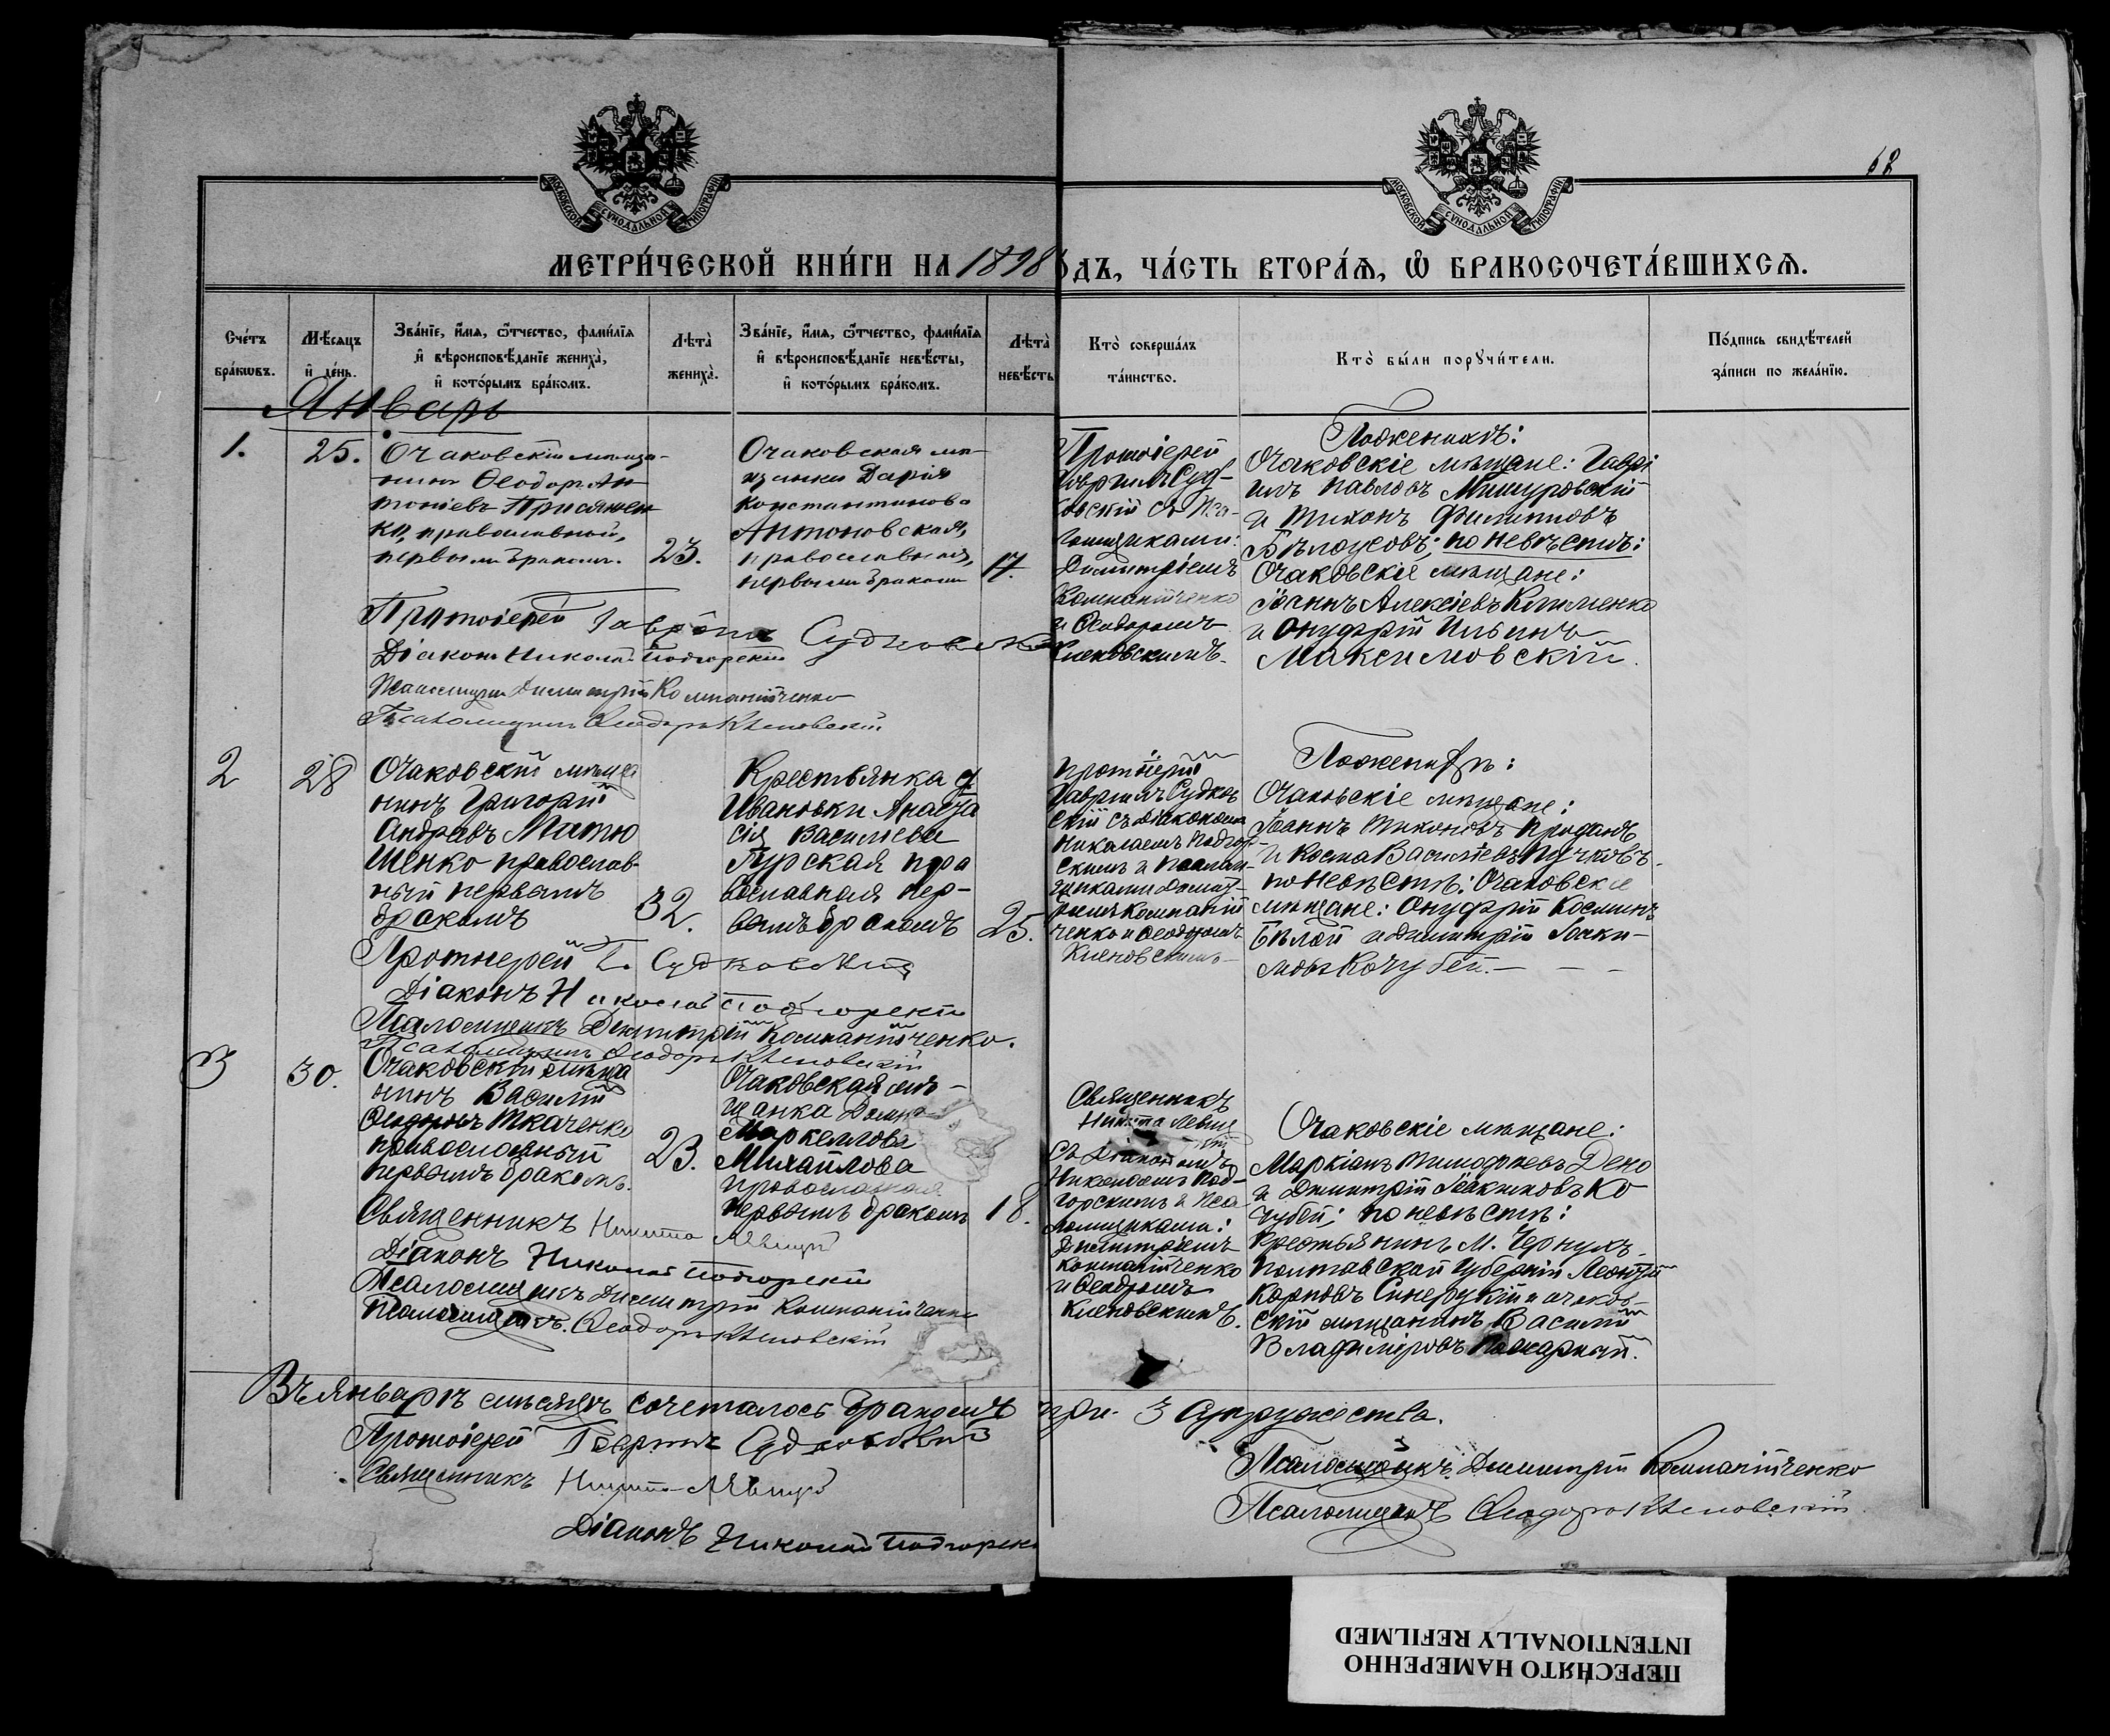 МОСКОВСКОЙ СУНОДАЛЬНОЙ ТИПОГРАФІИ
МОСКОВСКОЙ СУНОДАЛЬНОЙ ТИПОГРАФІИ
62
МЕТРИ́ЧЕСКОЙ КНИ́ГИ НА 1898
ОДЪ, ЧА́СТЬ ВТОРА́Ѧ, Ѽ БРАКОСОЧЕТА́ВШИХСѦ.
Сче́тъ бра́кѡвъ.
Мѣ́сяцъ и҆ де́нь.
Зва́нїе, и҆́мѧ, ѻ҆́тчество, фами́лїѧ
и҆ вѣроисповѣ́данїе жениха̀,
и҆ кото́рымъ бра́комъ.
Лѣта̀ жениха̀.
Зва́нїе, и҆́мѧ, ѻ҆́тчество, фами́лїѧ
и҆ вѣроисповѣ́данїе невѣ́сты,
и҆ кото́рымъ бра́комъ.
Лѣта̀ невѣ́сты
Кто̀ соверша́лъ
та́инство.
Кто̀ бы́ли порꙋчи́тели.
По́дпись свидѣ́телей
за́писи по жела́нїю.
Январь
1.
25.
Очаковскій мѣща-
нинъ Ѳеодоръ Ан-
тоніевъ Присяжен
ко, православный,
первымъ бракомъ.
23.
Очаковская мѣ-
щанка Дарія
Константинова
Антоновская,
православная,
первымъ бракомъ
17.
Протоіерей
Гавріилъ Суд-
ковскій съ Пса-
ломщиками:
Димитріемъ
Компанійченко
и Ѳеодоромъ
Кленовскимъ.
По женихѣ:
Очаковскіе мѣщане: Гаврі
илъ Павловъ Мишуровскій
и Тихонъ Филипповъ
Бѣлоусовъ; по невѣстѣ:
Очаковскіе мѣщане:
Іоаннъ Алексіевъ Клименко
и Онуфрій Ильинъ
Максимовскій.
Протоіерей Гавріилъ Судковскій
Діаконъ Николай Подгорскій
Псаломщикъ Димитрій Компанійченко
Псаломщикъ Ѳеодоръ Кленовскій
2
28
Очаковскій мѣща
нинъ Григорій
Андреевъ Матю
шенко православ-
ный первымъ
бракомъ
32.
Крестьянка д.
Ивановки Анаста
сія Васильева
Гурская пра
вославная пер-
вымъ бракомъ
25.
Протоіерей
Гавріилъ Судков
скій съ діакономъ
Николаемъ Подгор-
скимъ и псалом-
щиками Димит-
ріемъ Компаній
ченко и Ѳеодоромъ
Кленовскимъ
По женихѣ:
Очаковскіе мѣщане:
Іоаннъ Тихоновъ Проданъ
и Косма Васильевъ Пучковъ.
по невѣстѣ: Очаковскіе
мѣщане: Онуфрій Косминъ
Бѣлой и Димитрій Іоаки-
мовъ Кочубей.
Протоіерей Г. Судковскій
Діаконъ Николай Подгорскій
Псаломщикъ Димитрій Компанійченко.
Псаломщикъ Ѳеодоръ Кленовскій
3
30.
Очаковскій мѣща
нинъ Василій
Ѳеодоровъ Ткаченко
православный
первымъ бракомъ.
23.
Очаковская мѣ-
щанка Домна
Маркеллова
Михайлова
православная
первымъ бракомъ
18.
Священникъ
Никита Левиц
кій
съ Діакономъ
Николаемъ Под-
горскимъ и Пса
ломщиками:
Димитріемъ
Компанійченко
и Ѳеодоромъ
Кленовскимъ.
Очаковскіе мѣщане:
Маркіанъ Тимофеевъ Дено
и Димитрій Іоакимовъ Ко
чубей; по невѣстѣ:
крестьянинъ м. Чернухъ
Полтавской губерніи Леонтій
Карповъ Синеруκій и очаков-
скій мѣщанинъ Василій
Владиміровъ Пожарный.
Священникъ Никита Левицкій
Діаконъ Николай Подгорскій
Псаломщикъ Димитрій Компанійченко
Псаломщикъ Ѳеодоръ Кленовскій
Въ январѣ мѣсяцѣ сочеталось бракомъ три 3 супружества.
Протоіерей Гавріилъ Судковскій
Священникъ Никита Левицкій
Діаконъ Николай Подгорскі
Псаломщикъ Димитрій Компанійченко
Псаломщикъ Ѳеодоръ Кленовскій
ПЕРЕСНЯТО НАМЕРЕННО
INTENTIONALLY REFILMED